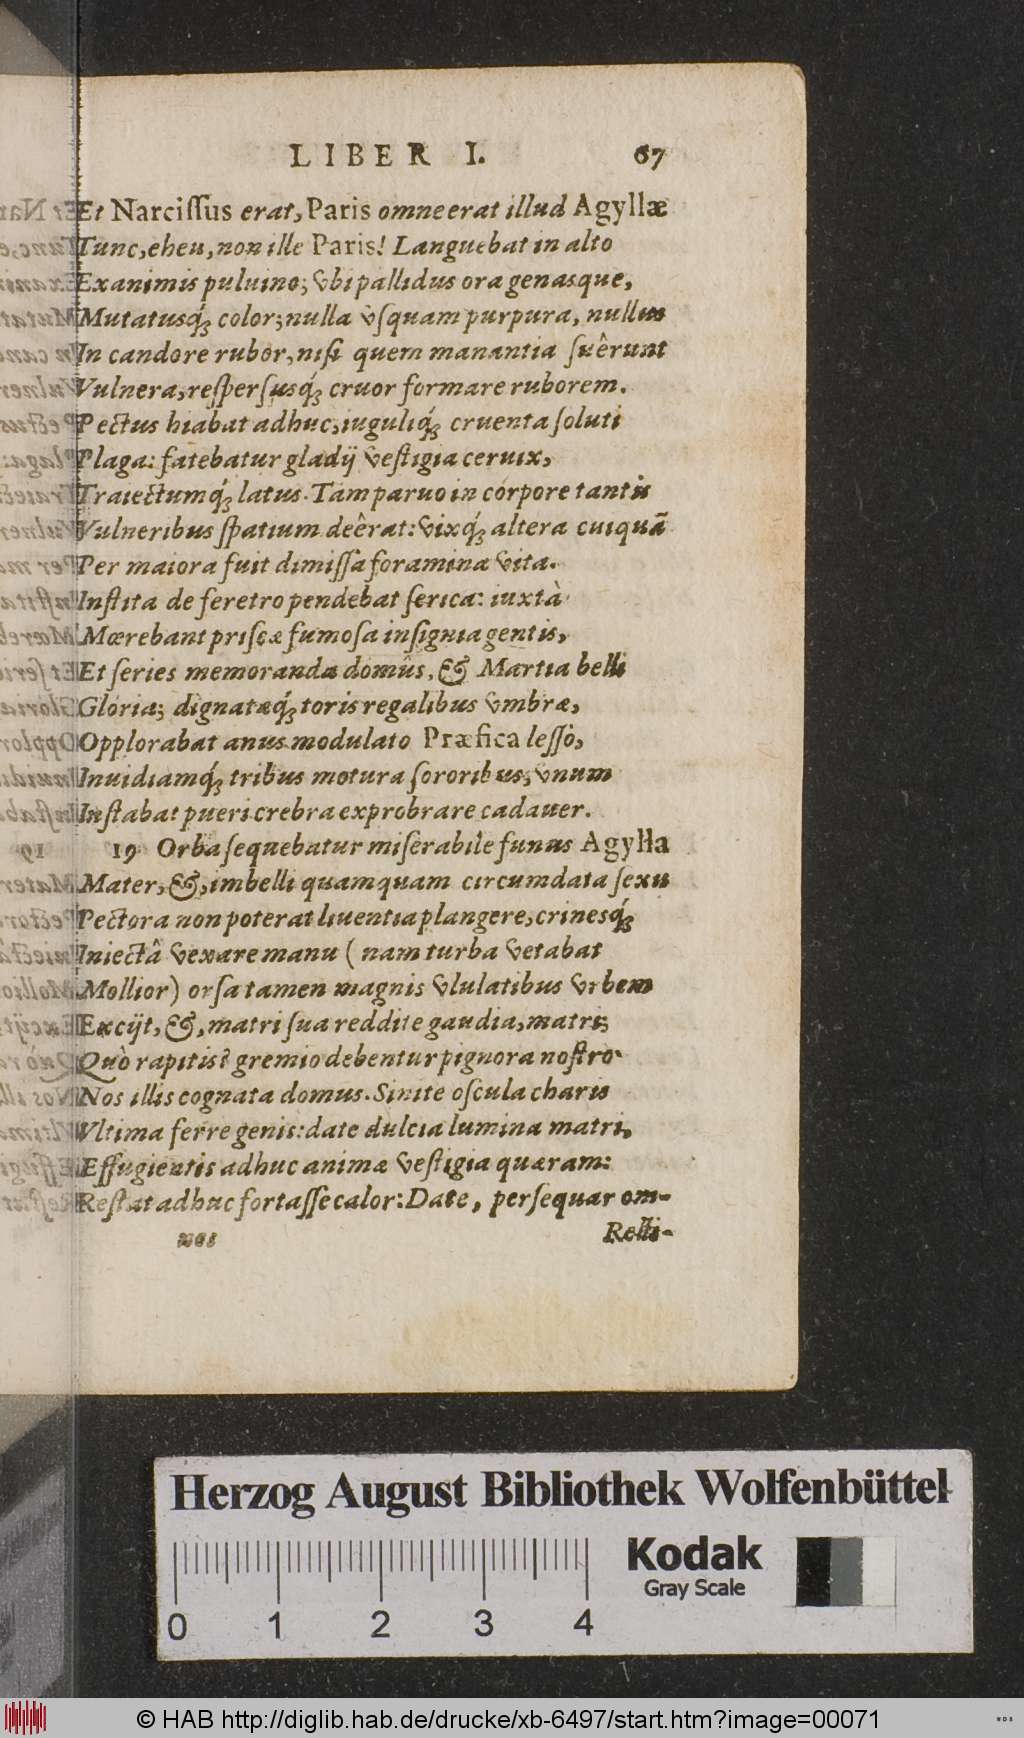 LIBER I. 67
Et Narcissus erat, Paris omne erat illud Agyllæ
Tunc, eheu, non ille Paris! Languebat in alto
Exanimis puluino; vbi pallidus ora genasque,
Mutatusq́; color; nulla vsquam purpura, nullus
In candore rubor, nisi quem manantia suêrunt
Vulnera, respersusq́; cruor formare ruborem.
Pectus hiabat adhuc, iuguliq́; cruenta soluti
Plaga: fatebatur gladij vestigia ceruix,
Traiectumq́; latus. Tam paruo in corpore tantis
Vulneribus spatium deêrat: vixq́; altera cuiquã
Per maiora fuit dimissa foramina vita.
Instita de feretro pendebat serica: iuxtà
Mœrebant priscæ fumosa insignia gentis,
Et series memoranda domûs, & Martia belli
Gloria; dignatæq́; toris regalibus vmbræ,
Opplorabat anus modulato Præfica lesso,
Inuidiamq́; tribus motura sororibus, vnum
Instabat pueri crebra exprobrare cadauer.
19 Orba sequebatur miserabile funus Agylla
Mater, &, imbelli quamquam circumdata sexu
Pectora non poterat liuentia plangere, crinesq́;
Iniectâ vexare manu (nam turba vetabat
Mollior) orsa tamen magnis vlulatibus vrbem
Excijt, &, matri sua reddite gaudia, matri;
Quò rapitis? gremio debentur pignora nostro
Nos illis cognata domus. Sinite oscula charis
Vltima ferre genis: date dulcia lumina matri,
Effugientis adhuc animæ vestigia quæram:
Restat adhuc fortasse calor: Date, persequar om-
nes Relli-
Herzog August Bibliothek Wolfenbüttel
Kodak
Gray Scale
0 1 2 3 4
© HAB http://diglib.hab.de/drucke/xb-6497/start.htm?image=00071